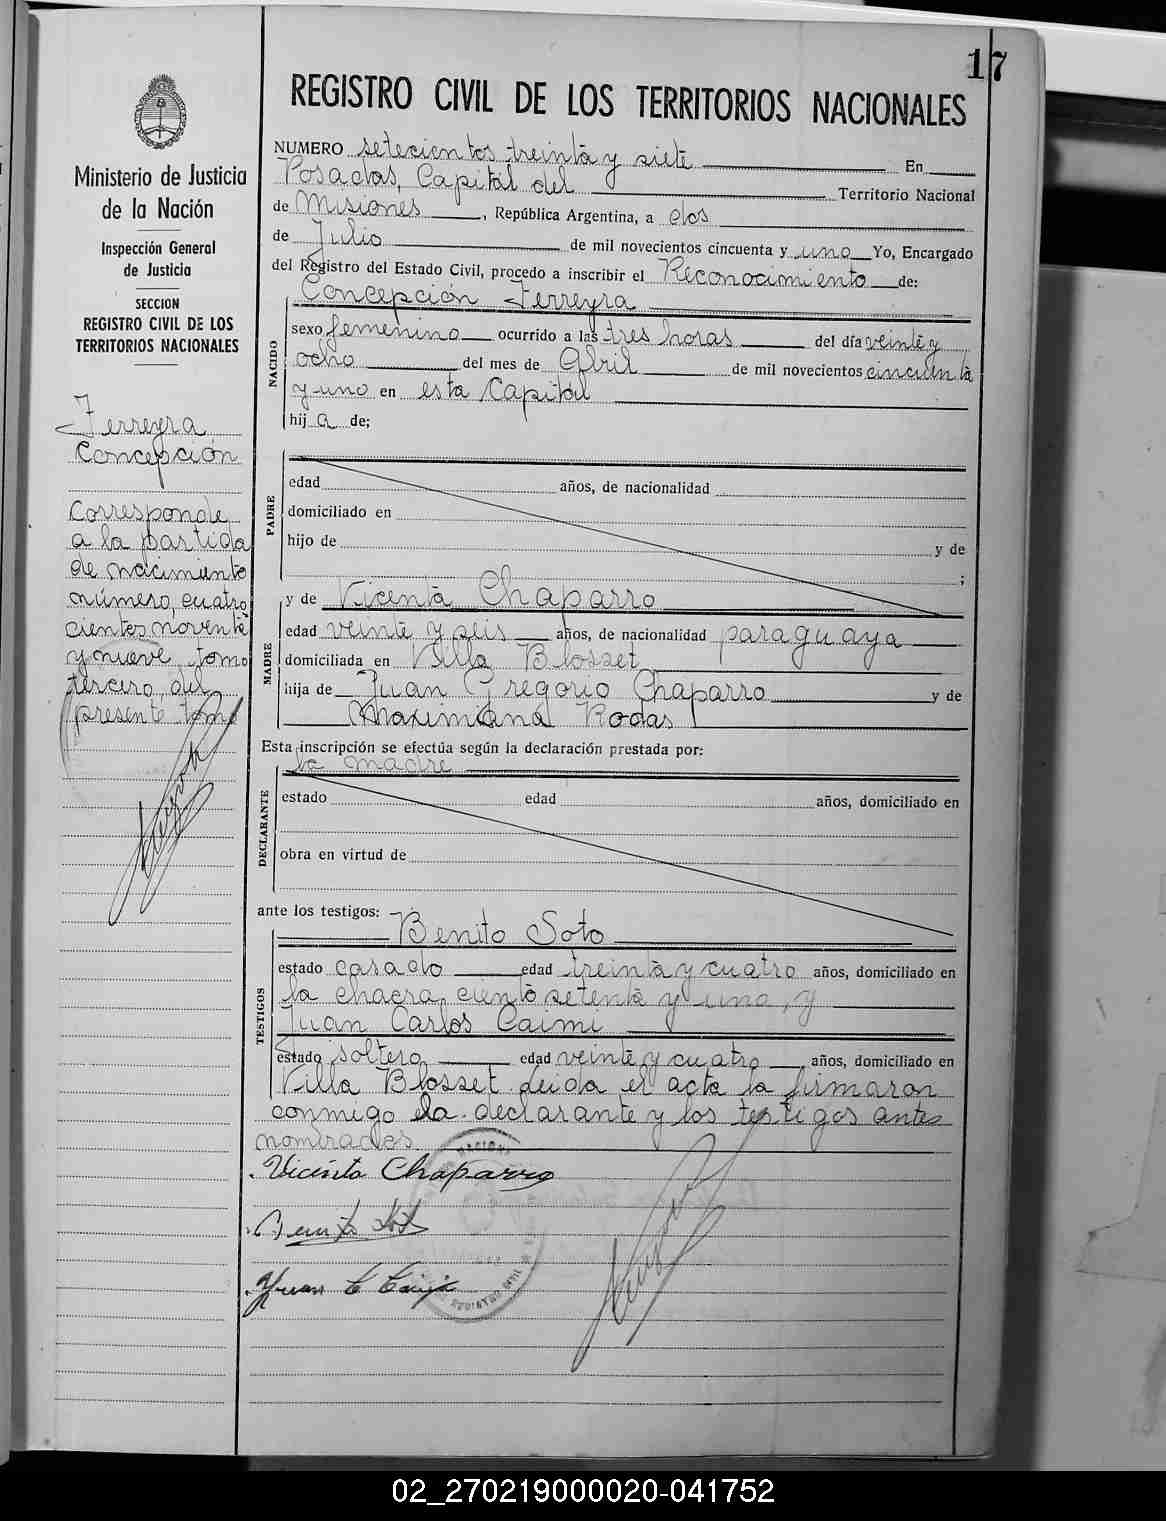 17
REGISTRO CIVIL DE LOS TERRITORIOS NACIONALES
Ministerio de Justicia
de la Nación
Inspección General
de Justicia
SECCION
REGISTRO CIVIL DE LOS
TERRITORIOS NACIONALES
Ferreyra
Concepción
Corresponde
a la partida
de nacimiento
número, cuatro
cientos noventa
y nueve, tomo
tercero, del
presente tomo
NUMERO setecientos treinta y siete En
Posadas, Capital del Territorio Nacional
de Misiones, República Argentina, a dos
de Julio de mil novecientos cincuenta y uno Yo, Encargado
del Registro del Estado Civil, procedo a inscribir el Reconocimiento de:
Concepción Ferreyra
NACIDO
sexo femenino ocurrido a las tres horas del día veinte y
ocho del mes de Abril de mil novecientos cincuenta
y uno en esta Capital
hij a de;
PADRE
edad años, de nacionalidad
domiciliado en
hijo de y de
;
y de Vicenta Chaparro
MADRE
edad veinte y seis años, de nacionalidad paraguaya
domiciliada en Villa Blosset
hija de Juan Gregorio Chaparro y de
Maximiana Rodas
Esta inscripción se efectúa según la declaración prestada por:
la madre
DECLARANTE
estado edad años, domiciliado en
obra en virtud de
ante los testigos:
Benito Soto
TESTIGOS
estado casado edad treinta y cuatro años, domiciliado en
la chacra ciento setenta y una, y
Juan Carlos Caimi
estado soltero edad veinte y cuatro años, domiciliado en
Villa Blosset leida el acta la firmaron
conmigo la declarante y los testigos antes
nombrados
Vicenta Chaparro
Benito Soto
Juan C Caimi
REGISTRO CIVIL
02_270219000020-041752